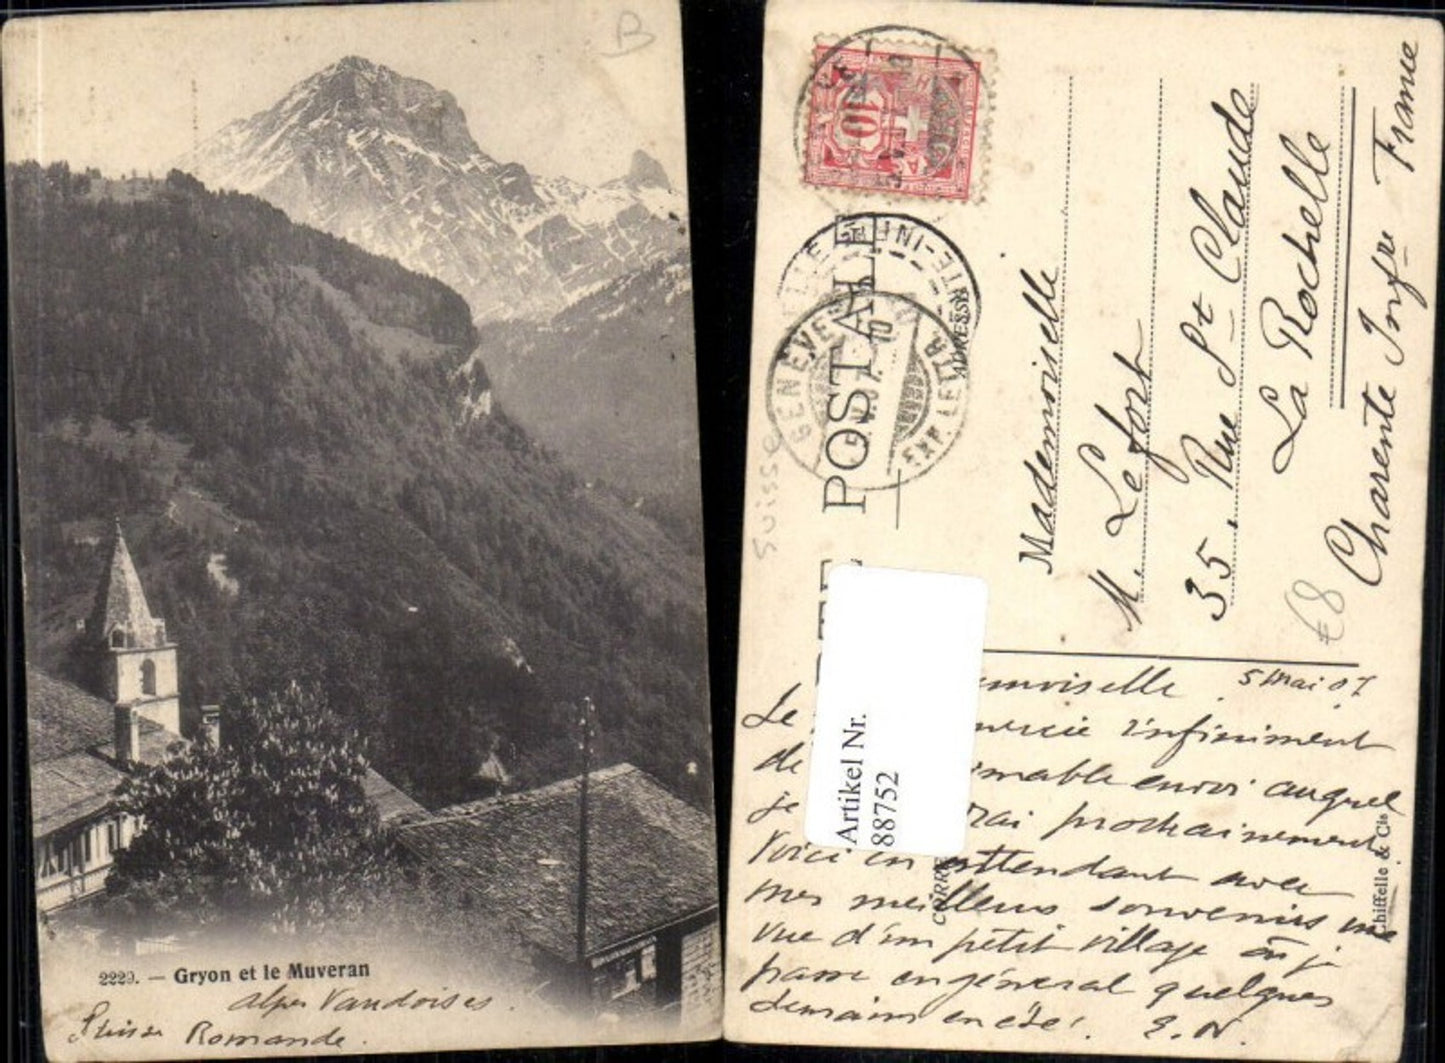 B
2229. — Gryon et le Muveran
alpes Vaudoises.
Suisse Romande.
10
GENEVE
EXP. LETTR.
5.V.07. 10
LA ROCHELLE
CHTE-INF
CARTE POSTALE
ADRESSE
Suisse
Mademoiselle
M. Lefort
35. Rue St Claude
La Rochelle
Charente Infre France
€8
Artikel Nr.
88752
emoiselle 5 Mai 07
Je ercie infiniment
de imable envoi auquel
je rai prochainement
Voici en attendant avec
mes meilleurs souvenirs une
vue d'un petit village où je
passe en général quelques
semaines en été! E. N.
CORRE
Chiffelle & Cie